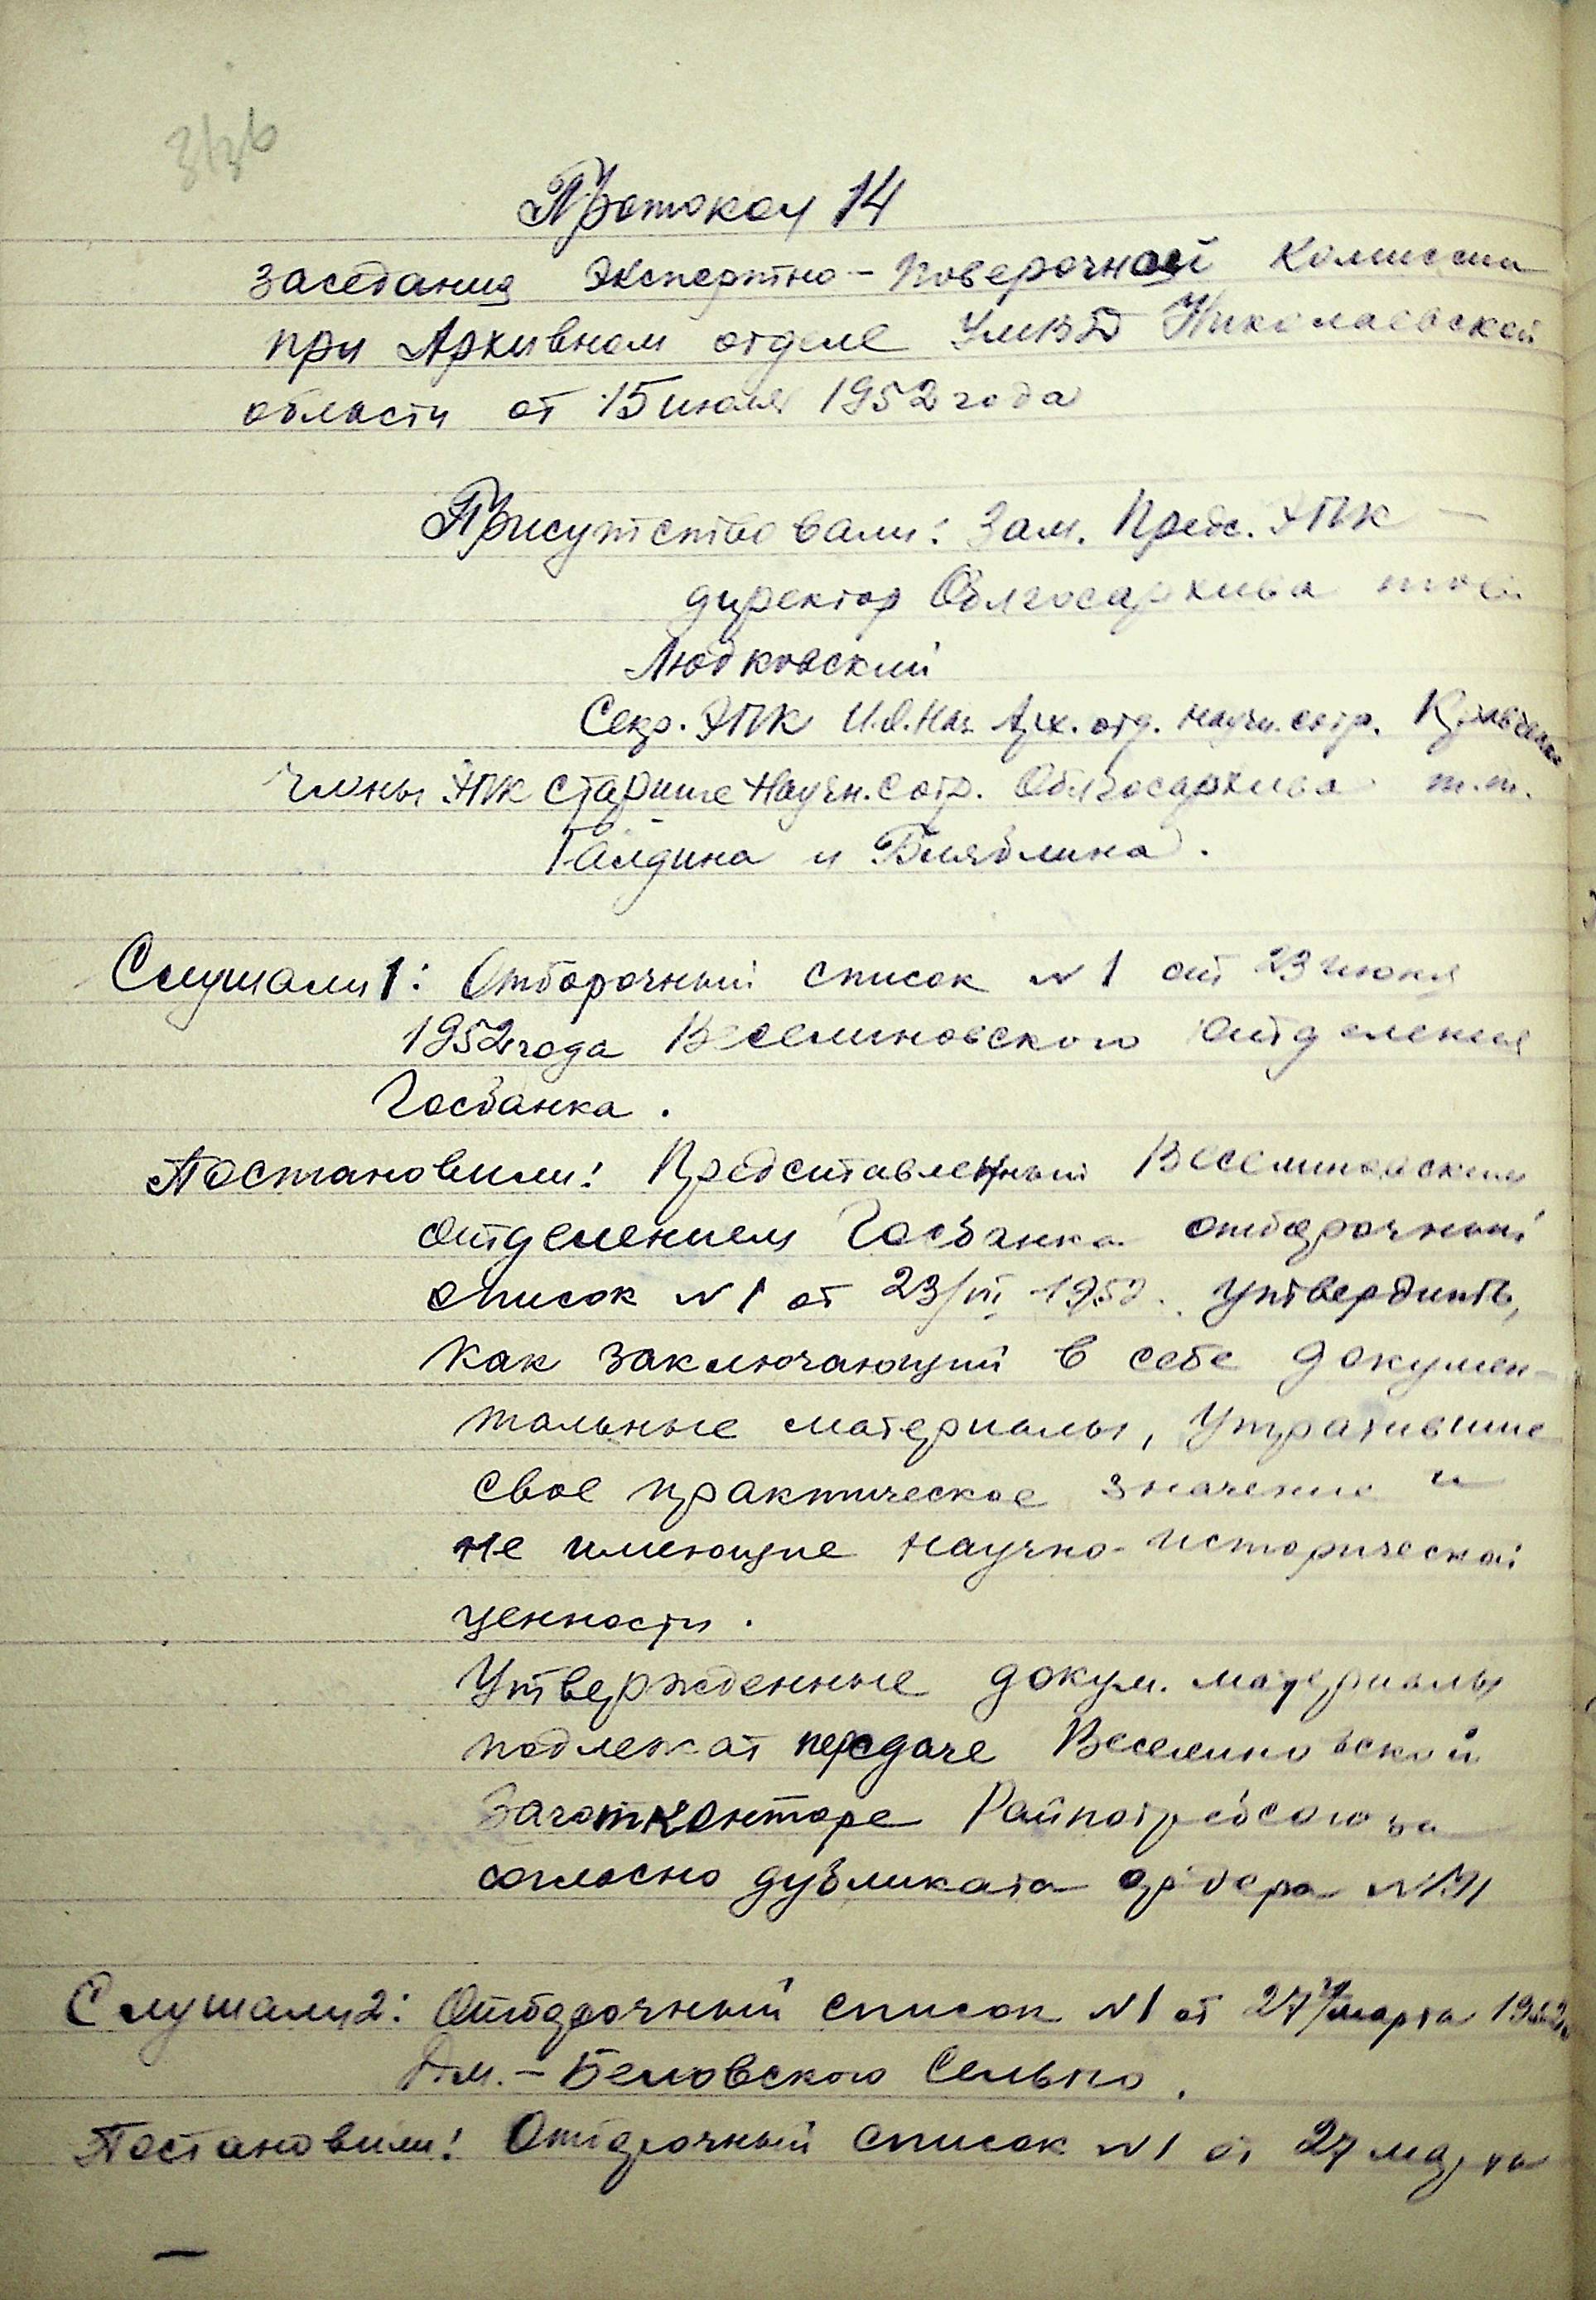 Протокол 14
заседания Экспертно-Поверочной Комиссии
при Архивном отделе УМВД Николаевской
области от 15 июля 1952 года
Присутствовали: Зам. Предс. ЭПК –
директор Облгосархива тов.
Людковский
Секр. ЭПК И.О.Нач. Арх. отд. научн. сотр.
Члены ЭПК Старшие Научн. Сотр. Облгосархива т.т.
Галдина и
Слушали 1: Отборочный список №1 от 23 июня
1952 года Веселиновского отделения
Госбанка.
Постановили: Представленный Веселиновским
отделением Госбанка отборочный
список №1 от 23/ 1952. утвердить,
как заключающий в себе докумен-
тальные материалы, утратившие
свое практическое значение и
не имеющие научно-исторической
ценности.
Утвержденные докум. материалы
подлежат передаче Веселиновской
Заготконторе Райпотребсоюза
согласно дубликата ордера
Слушали 2: Отборочный список №1 от 27 марта 1952
Дм.-Беловского Сельпо.
Постановили: Отборочный список №1 от 27 марта